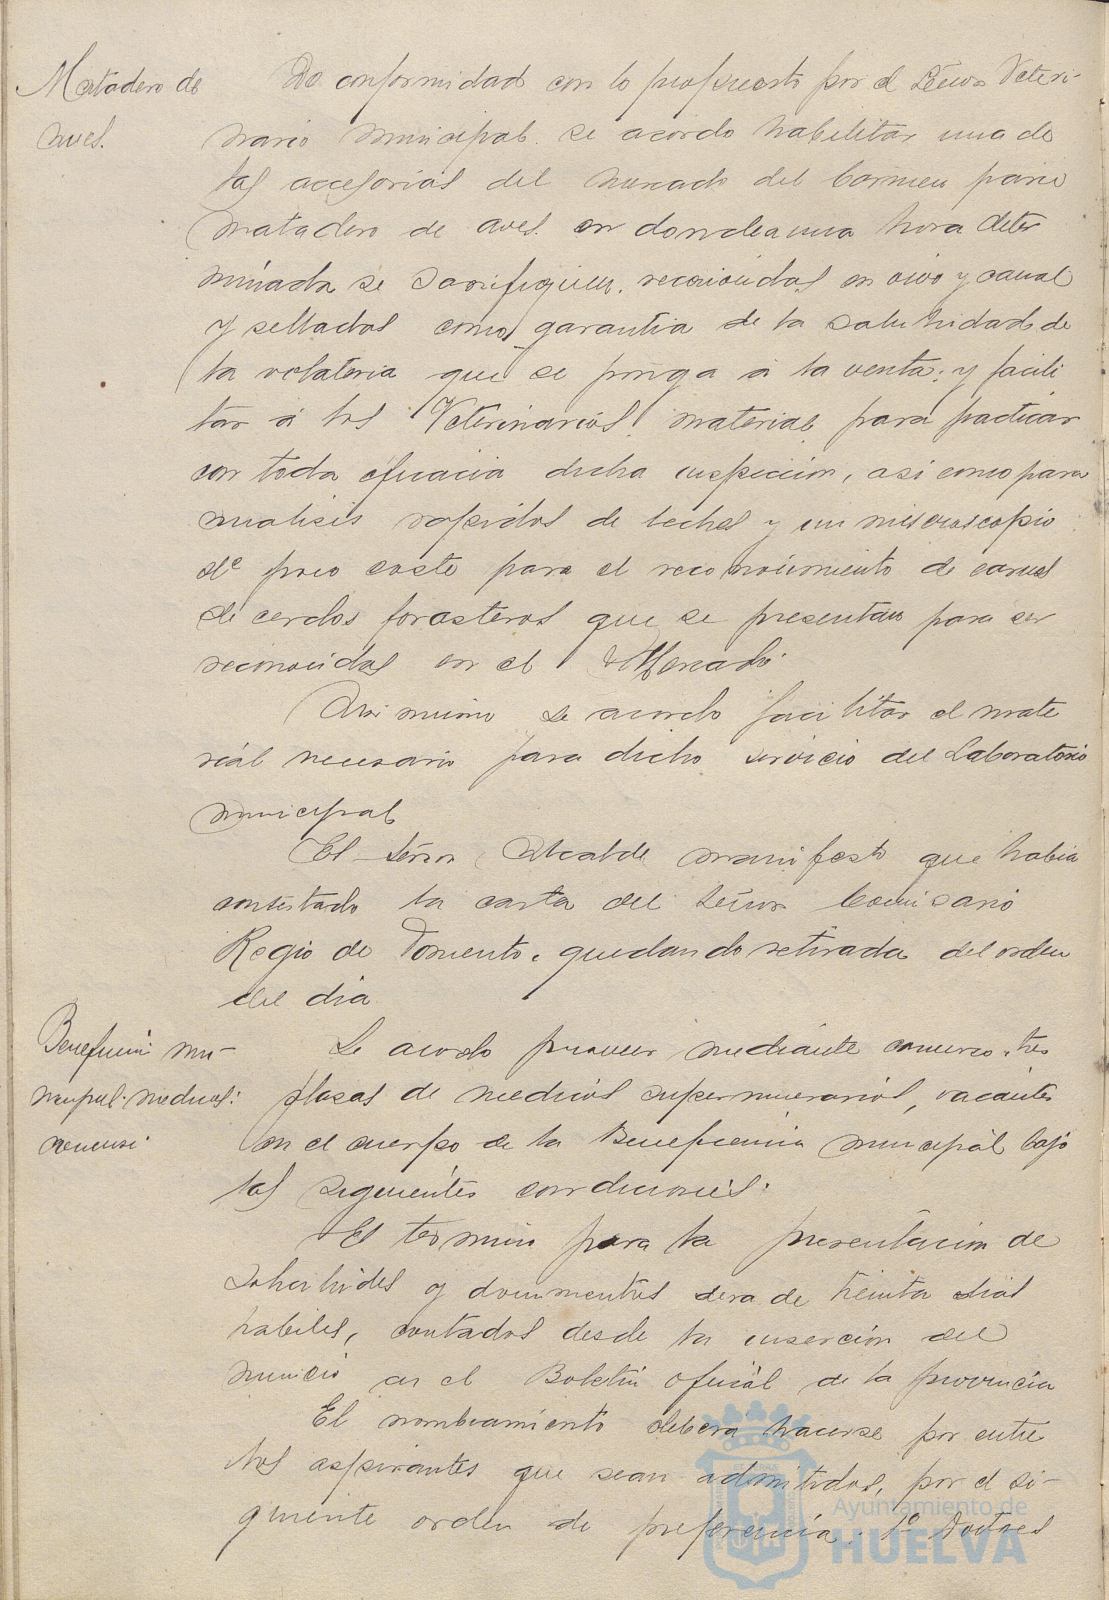 Matadero de
aves.
De conformidad con lo propuesto por el Señor Veteri-
nario municipal se acordo habilitar una de
las accesorias del mercado del Carmen para
matadero de aves. en donde a una hora deter
minada se sacrifiquen, reconocidas en vivo y canal
y selladas como garantia de la salubridad de
la volateria que se ponga á la venta; y facili
tar á los Veterinarios material para practicar
con toda eficacia dicha inspeccion, asi como para
analisis rapidos de leches y un miscroscopio
de poco coste para el reconocimiento de carnes
de cerdos forasteros que se presentan para ser
reconocidas en el Mercado.
Asi mismo se acordo facilitar el mate
rial necesario para dicho servicio del Laboratorio
municipal
El Señor Alcalde manifesto que habia
contestado la carta del Señor Comisario
Regio de Fomento, quedando retirada del orden
del dia
Beneficencia mu-
nicipal. medicos:
concurso.
Se acordo proveer mediante concurso, tres
plazas de medicos supernumerarios, vacantes
en el cuerpo de la Beneficencia municipal bajo
las siguientes condiciones:
El termino para la presentacion de
solicitudes y documentos sera de treinta dias
habiles, contados desde la insercion del
anuncio en el Boletin oficial de la provincia
El nombramiento debera hacerse por entre
los aspirantes que sean admitidos, por el si-
guiente orden de preferencia: 1º Doctores
Ayuntamiento de
HUELVA